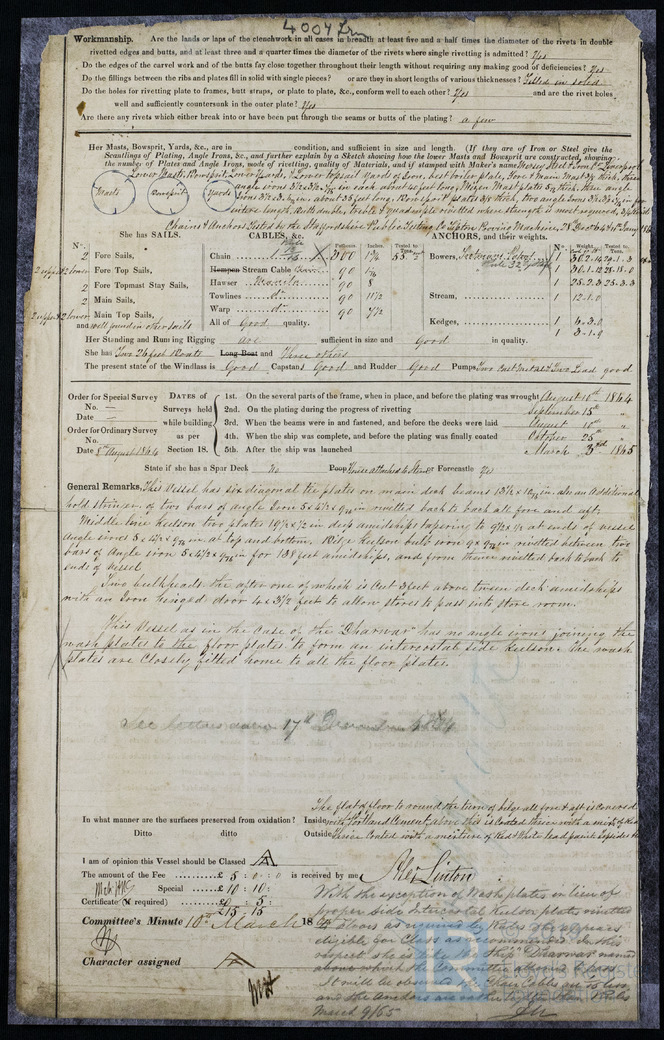 4004 Irn
Workmanship. Are the lands or laps of the clenchwork in all cases in breadth at least five and a half times the diameter of the rivets in double
rivetted edges and butts, and at least three and a quarter times the diameter of the rivets where single rivetting is admitted? Yes
Do the edges of the carvel work and of the butts fay close together throughout their length without requiring any making good of deficiencies? Yes
Do the fillings between the ribs and plates fill in solid with single pieces? or are they in short lengths of various thicknesses? Filled in solid
Do the holes for rivetting plate to frames, butt straps, or plate to plate, &c., conform well to each other? Yes and are the rivet holes
well and sufficiently countersunk in the outer plate? Yes
Are there any rivets which either break into or have been put through the seams or butts of the plating? a few
Her Masts, Bowsprit, Yards, &c., are in condition, and sufficient in size and length. (If they are of Iron or Steel give the
Scantlings of Plating, Angle Irons, &c., and further explain by a Sketch showing how the lower Masts and Bowsprit are constructed, showing
the number of Plates and Angle Irons, mode of rivetting, quality of Materials, and if stamped with Maker's name Mersey Steel & Iron Co Liverpool
Lower Masts, Bowsprit, Lower Yards, & Lower topsail Yards of Iron, best boiler plate, Fore & Main Mast thick, three
Masts Bowsprit Yards
angle irons in each about 60 feet long, Mizen Mast plates thick, three angle
irons about 35 feet long, Bowsprit plates thick, two angle irons for
entire length, Butts double, treble & quadruple rivetted where strength is most required,
Chains & Anchors Tested by the Staffordshire Public Testing Co Tipton Proving Machine, 28 Decr 64 & 10th Jany 1865
She has SAILS. CABLES, &c. ANCHORS, and their weights.
No. Fathoms Inches Tested to Tons No. Weight Tested to Tons
2 Fore Sails, Chain 300 1 7/8 Bowers, 1
2 upper & 2 lower Fore Top Sails, Hempen Stream Cable 90 1
2 Fore Topmast Stay Sails, Hawser Manila 90 8 1
2 Main Sails, Towlines do 90 11 1/2 Stream, 1 12.1.0
2 upper & 2 lower Main Top Sails, Warp do 90 7 1/2 Kedges, 1 6.3.0
and well found in other sails All of Good quality. 1 3.1.0
Her Standing and Running Rigging are sufficient in size and Good in quality.
She has Two 26 feet Boats Long Boat and Three others
The present state of the Windlass is Good Capstans Good and Rudder Good Pumps Two Cast Metal & Two Lead good
Order for Special Survey
No. —
Date —
Order for Ordinary Survey
No. —
Date 8th August 1864
DATES of
Surveys held
while building
as per
Section 18.
1st. On the several parts of the frame, when in place, and before the plating was wrought August 10th 1864
2nd. On the plating during the progress of rivetting September 15th "
3rd. When the beams were in and fastened, and before the decks were laid August 10th "
4th. When the ship was complete, and before the plating was finally coated October 25th "
5th. After the ship was launched March 3rd 1865
State if she has a Spar Deck No Poop House attached to Stern or Forecastle Yes
General Remarks, This vessel has six diagonal tie plates on main deck beams 13 1/2 x in. also an Additional
hold stringer of two bars of angle Iron 5 x 4 1/2 x in rivetted back to back all fore and aft.
Middle line Keelson two plates 19 1/2 x 1/2 in deep amidships tapering to at ends of vessel
Angle irons 5 x 4 1/2 x in at top and bottom. Bilge Keelson bulb iron in rivetted between two
bars of Angle iron 5 x 4 1/2 x in for 138 feet amidships, and from thence rivetted back to back to
ends of vessel
Two bulkheads the after one of which is Cut 3 feet above tween deck amidships
with an Iron hinged door 4 x 3 1/2 feet to allow stores to pass into store room.
This Vessel as in the Case of the "Dharwar" has no angle irons joining the
wash plates to the floor plates to form an intercostal side Keelson: the wash
plates are Closely fitted home to all the floor plates.
See letters dated 17th December 1864
The flat of floor to round the turn of bilge all fore & aft is covered
In what manner are the surfaces preserved from oxidation? Inside with Portland Cement, above this is Coated thrice with a mixt of Red
Ditto ditto Outside thrice Coated with a mixture of Red & White lead paint
I am of opinion this Vessel should be Classed A
The amount of the Fee £ 5 : 0 : 0 is received by me
Alex Linton
Special £ 10 : 10 :
Certificate (if required) £0 : 5 :
£15 15
Committee's Minute 10th March 18
Character assigned A
With the exception of Wash plates in lieu of
proper side Intercostal Keelson plates rivetted
to Floors as required by Rules she appears
eligible for Class as recommended. In this
respect she is like the Ship "Dharwar" named
above which the Committee allowed to pass
It will be observed
and the Anchors are rather lighter than Rules
March 9/65